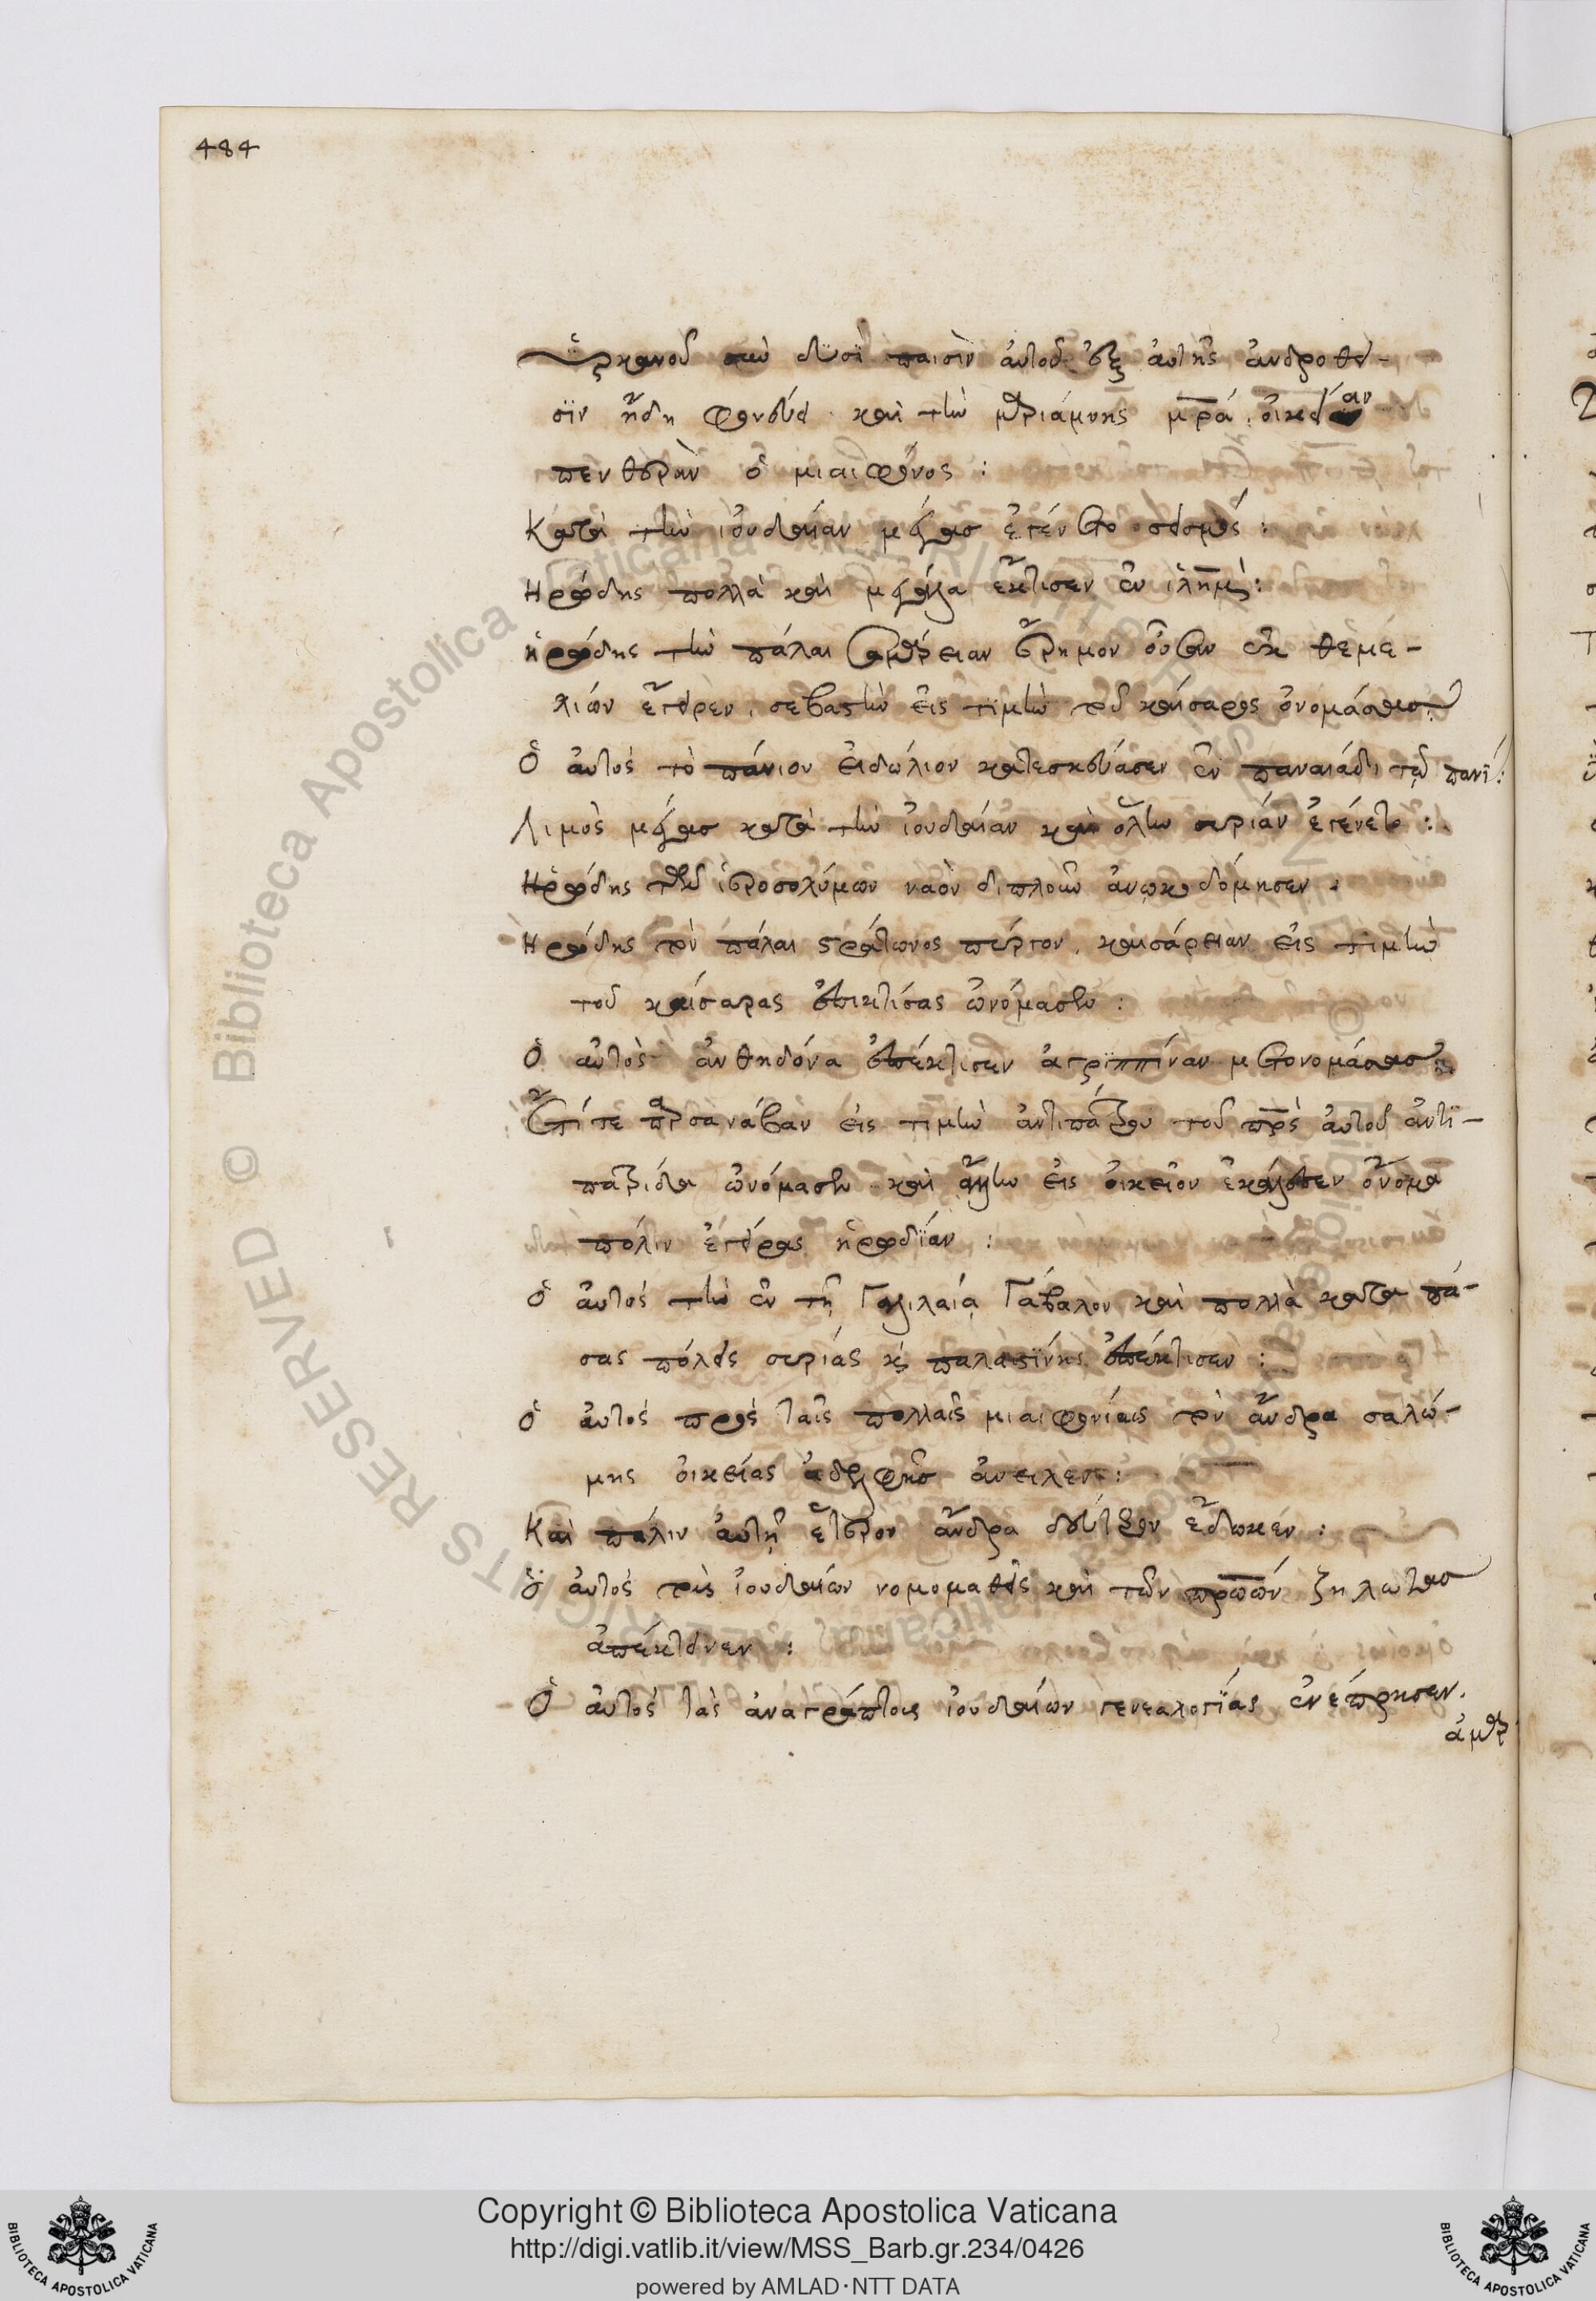 484
Ὑρκανοῦ σὺν δυσὶ παισὶν αὐτοῦ ἐξ αὐτῆς ἀνδροθεῖ-
σιν ἤδη φονεύει καὶ τὴν μαριάμνης μρ̅α. οἰκείαν
πενθερὰν ὁ μιαιφόνος :
Κατὰ τὴν ἰουδαίαν μέγας ἐγένετο σεισμός :
Ηρώδης πολλὰ καὶ μεγάλα ἔκτισεν ἐν ἰλημ̅ :
ἡρώδης τὴν πάλαι σαμάρειαν ἔρημον οὖσαν ἐκ θεμε-
λίων ἔγειρεν, σεβαστὴν εἰς τιμὴν τοῦ καίσαρος ὀνομάσας :
Ὁ αὐτὸς τὸ πάνιον εἰδώλιον κατεσκεύασεν ἐν παναιάδι τῷ πανί :
Λιμὸς μέγας κατὰ τὴν ἰουδαίαν καὶ ὅλην συρίαν ἐγένετο :
Ηρώδης τῶν ἱεροσολύμων ναὸν διπλοῦν ἀνῳκοδόμησεν .
Ηρώδης τὸν πάλαι στράτωνος πύργον, καισάρειαν εἰς τιμὴν
τοῦ καίσαρας ἐπικτίσας ὠνόμασεν :
Ὁ αὐτὸς ἀνθηδόνα ἐπέκτισεν ἀγριππίναν μετονομάσας :
Ἔτι τε παρσανάβαν εἰς τιμὴν ἀντιπάτρου τοῦ πρ̅ς αὐτοῦ ἀντι-
πατρίδα ὠνόμασεν καὶ ἄλλην εἰς οἰκεῖον ἐκάλεσεν ὄνομα
πόλιν ἐγείρας ἡρωδίαν :
Ὁ αὐτὸς τὴν ἐν τῇ Γαλιλαίᾳ Γάβαλον καὶ πολλὰ κατὰ πά-
σας πόλεις συρίας κ̀ παλαιστίνης ἐπέκτισεν :
ὁ αὐτὸς πρὸς ταῖς πολλαῖς μιαιφονίαις τὸν ἄνδρα σαλώ-
μης οἰκείας ἀδελφῆς ἀνεῖλεν :
Καὶ πάλιν αὐτῇ ἕτερον ἄνδρα δεύτερον ἔδωκεν :
ὁ αὐτὸς τοὺς ἰουδαίων νομομαθεῖς καὶ τῶν πρώτων ζηλωτὰς
ἀπέκτεινεν :
Ὁ αὐτὸς τὰς ἀναγράπτους ἰουδαίων γενεαλογίας ἐνέπρησεν.
ἁμαρ
Copyright © Biblioteca Apostolica Vaticana
http://digi.vatlib.it/view/MSS_Barb.gr.234/0426
powered by AMLAD·NTT DATA